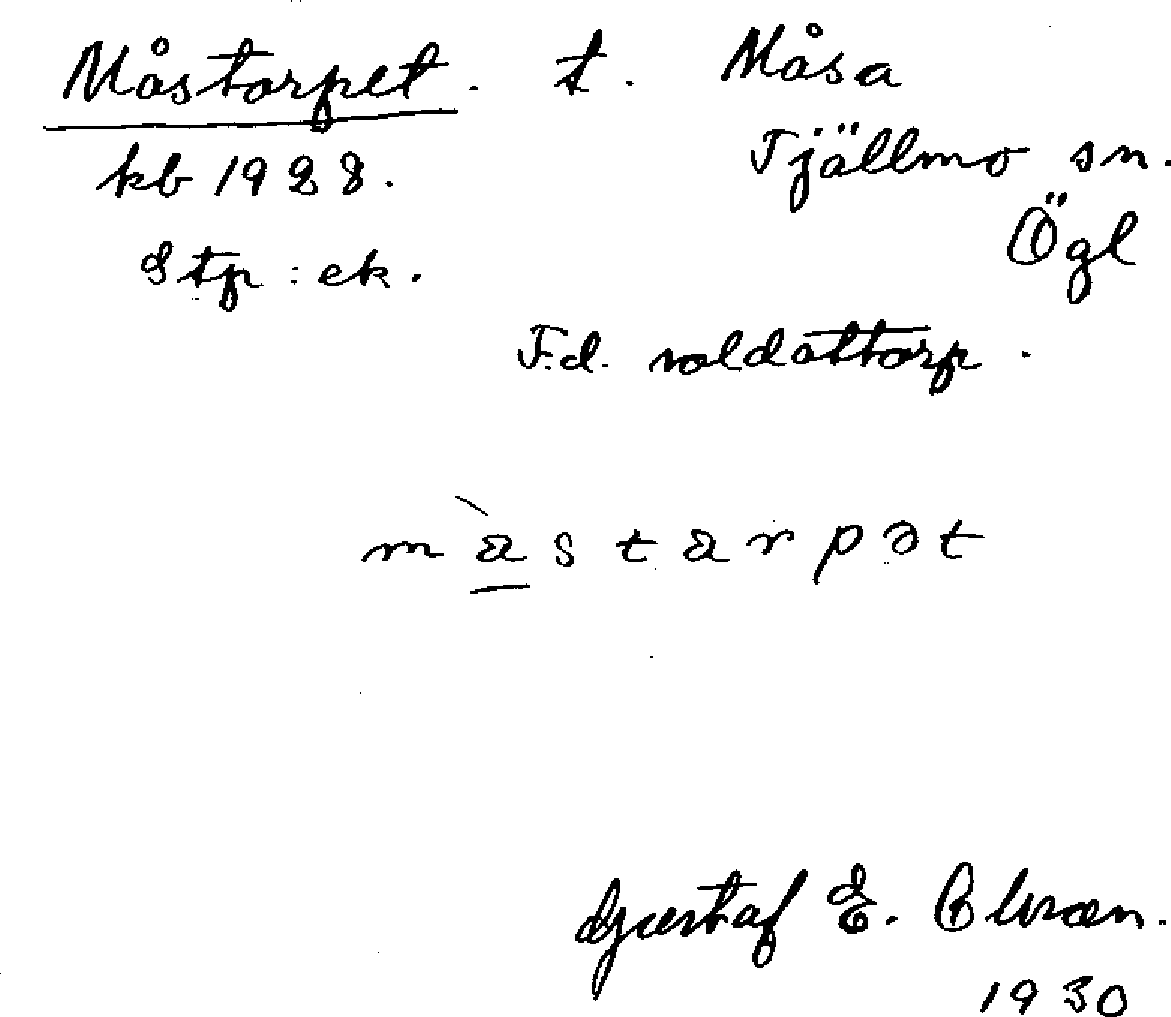 Måstorpet. t. Måsa
kb 1928. Tjällmo sn.
Stp: ek. Ögl
F.d. soldattorp.
Gustaf E.
1930